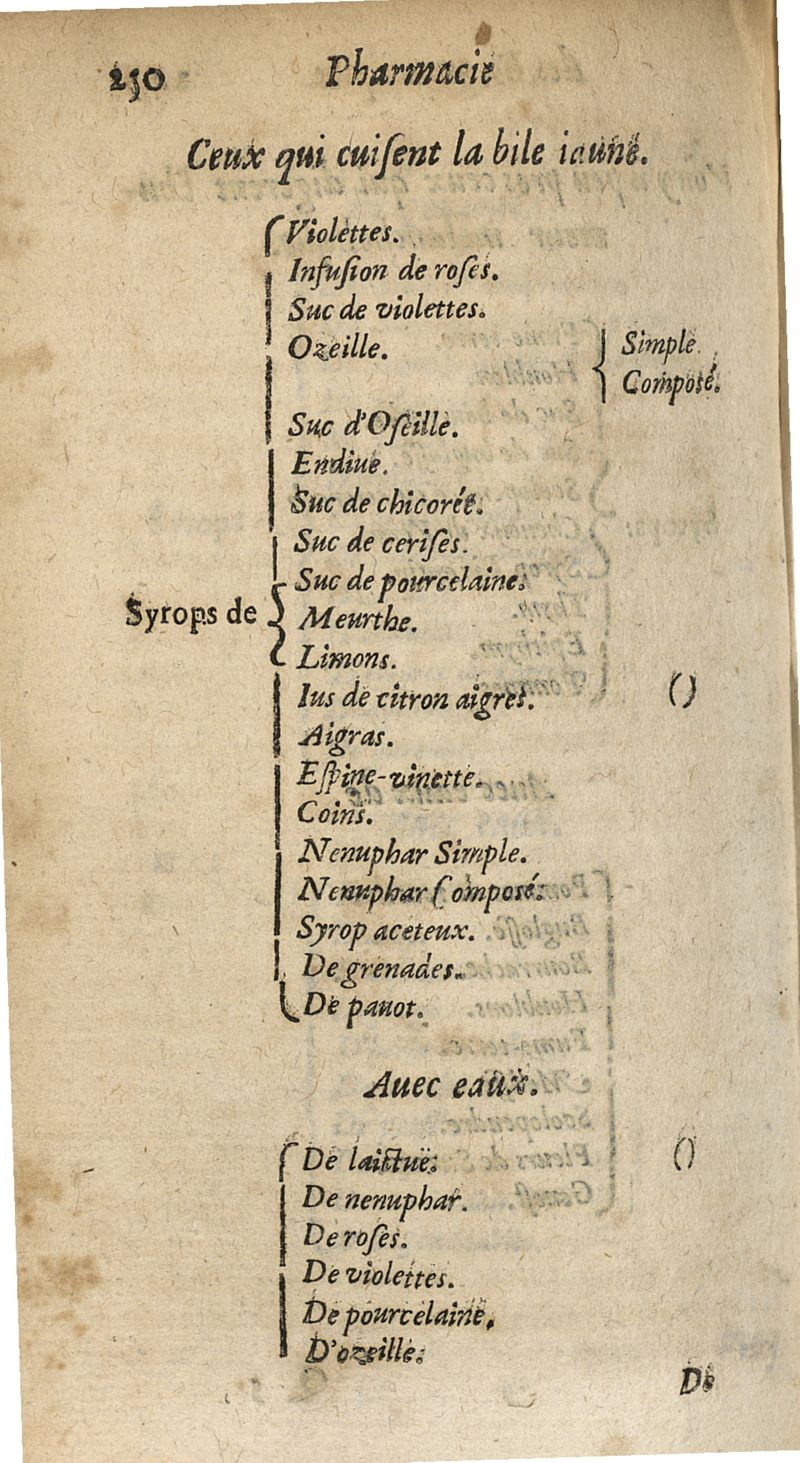 230 Pharmacie
Ceux qui cuiſent la bile iaune.
Violettes.
Infuſion de roſes.
Suc de violettes.
Ozeille. Simple.
Compoſé.
Suc d'Oſeille.
Endiue.
Suc de chicorée.
Suc de ceriſes.
Suc de pourcelaine.
Syrops de Meurthe.
Limons.
Ius de citron aigret. ()
Aigras.
Eſpine-vinette.
Coins.
Nenuphar Simple.
Nenuphar Compoſé.
Syrop aceteux.
De grenades.
De pauot.
Auec eaux.
De laictue. ()
De nenuphar.
De roſes.
De violettes.
De pourcelaine.
D'ozeille.
De